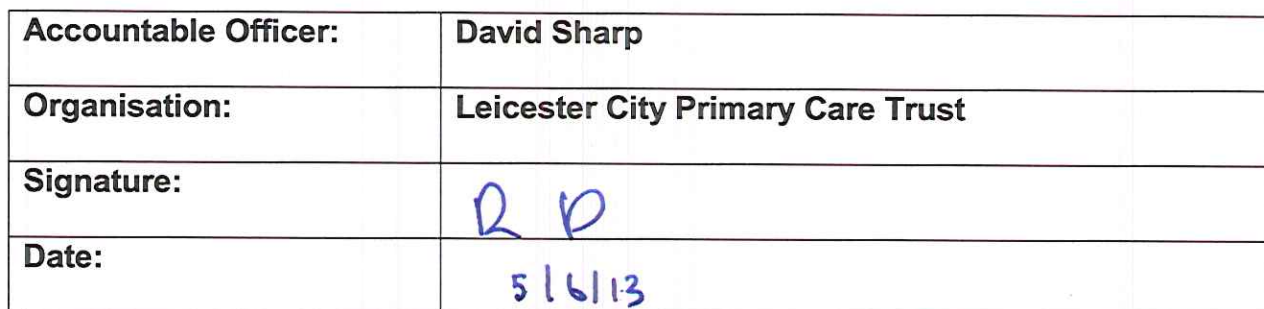 Accountable Officer: David Sharp
Organisation: Leicester City Primary Care Trust
Signature:
Date: 5/6/13